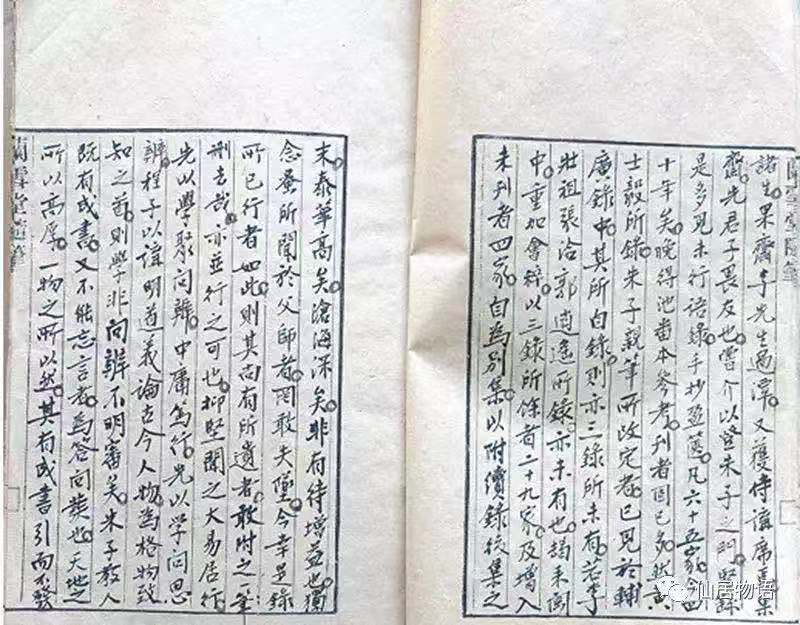 諸生果齋李先生過潭又獲侍講席焉果
齋先君子畏友也嘗介以登朱子之門堅
是多見未行語錄手抄盈篋凡六十五家今四
十年矣晚得池番本參考刊者固已多然黃
士毅所錄朱子親筆所改定者已見於輔
廣錄中其所自錄則亦三錄所未有若李
壯祖張洽郭逍遙所錄亦未有也朅来閩
中重加會稡以三錄所餘者二十九家及增入
未刊者四家自為別集以附續錄後集之
末泰華高矣滄海深矣非有待增益也獨
念蚤所聞於父師者罔敢失墜今幸是錄
所已行者如此則其尚有所遺者敢付之筆
削去哉亦並行之可也抑堅聞之大易居行
先以學聚問辨中庸篤行先以学問思
辨程子以講明道義論古今人物為格物致
知之首則學非問辨不明審矣朱子教人
既有成書又不能忘言者為答問發也天地之
所以高厚一物之所以然其在成書引而不發
蘭雪堂隨筆
仙居物语